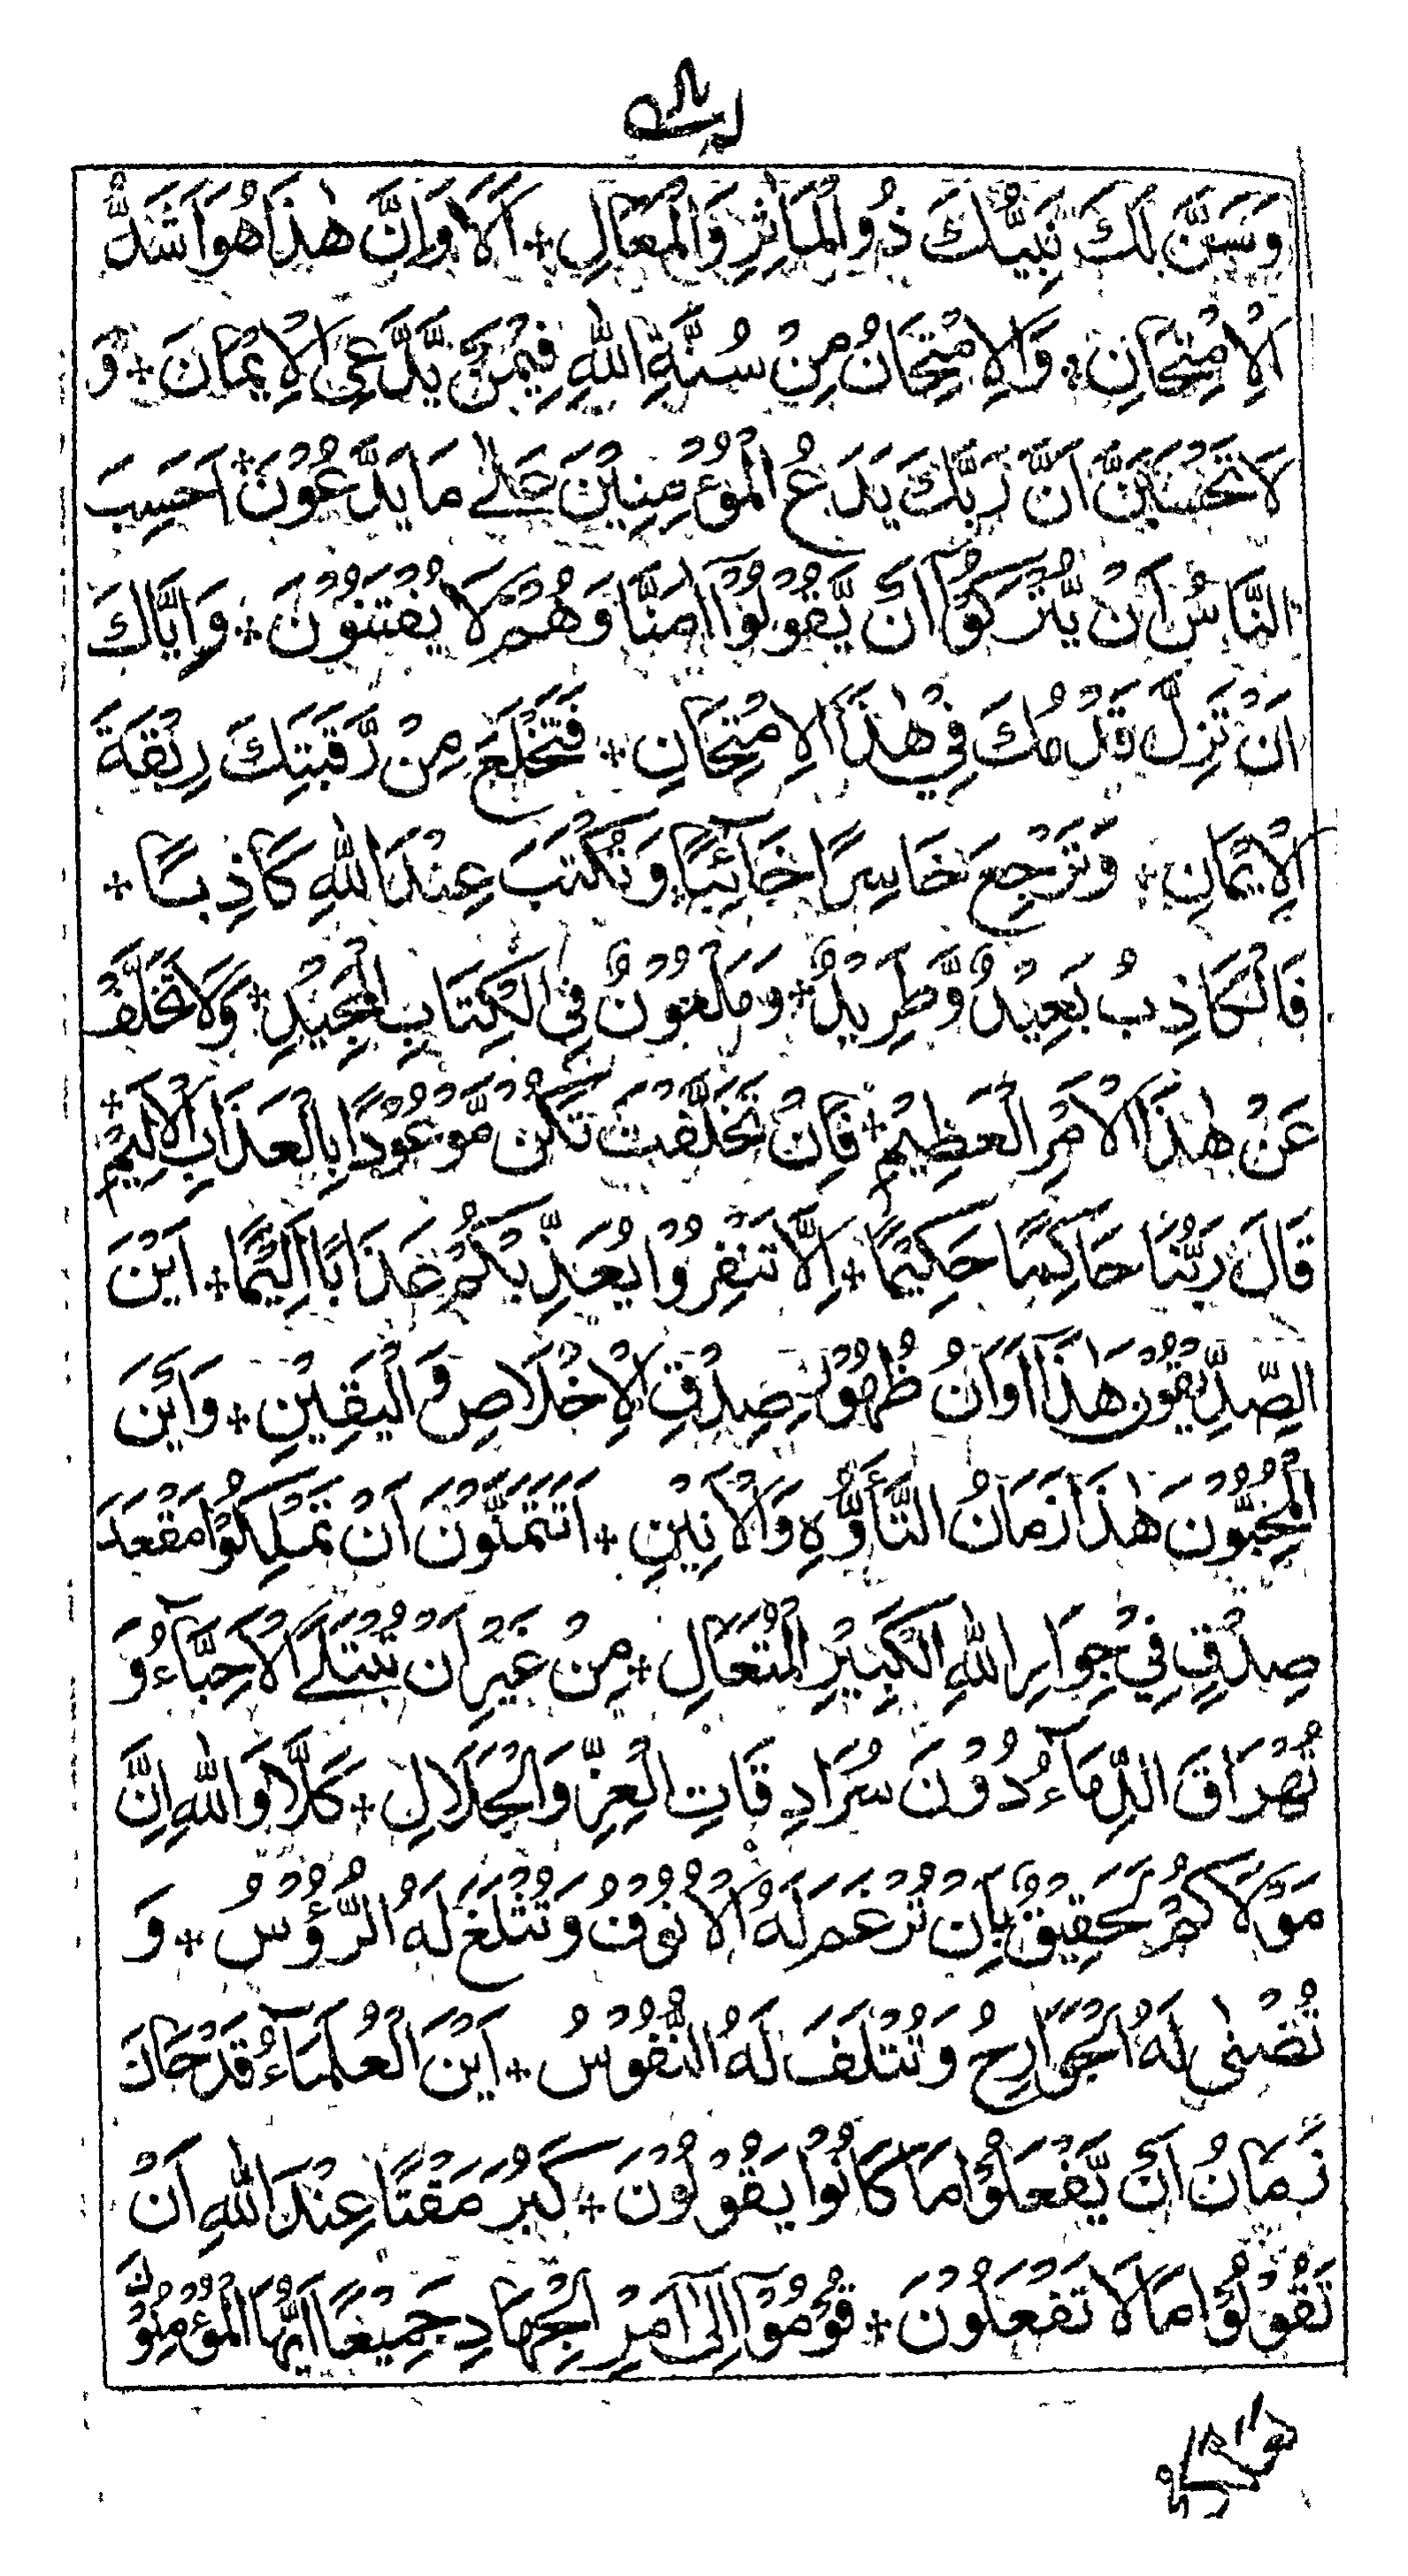 وَسَنَّ لَكَ نَبِيُّكَ ذُو الْمَاٰثِرِ وَالْمَعَالِ + اَلَا وَاِنَّ هٰذَا هُوَ اَشَدُّ
الْاِمْتِحَانِ + وَالْاِمْتِحَانُ مِنْ سُنَّةِ اللّٰهِ فِيْمَنْ يَّدَّعِى الْاِيْمَانَ + وَ
لَا تَحْسَبَنَّ اَنَّ رَبَّكَ يَدَعُ الْمُؤْمِنِيْنَ عَلٰے مَا يَدَّعُوْنَ + اَحَسِبَ
النَّاسُ اَنْ يُّتْرَكُوْٓا اَنْ يَّقُوْلُوْٓا اٰمَنَّا وَهُمْ لَا يُفْتَنُوْنَ + وَاِيَّاكَ
اَنْ تَزِلَّ قَدَمُكَ فِيْ هٰذَا الْاِمْتِحَانِ + فَتَخْلَعَ مِنْ رَّقَبَتِكَ رِبْقَةَ
الْاِيْمَانِ + وَتَرْجِعَ خَاسِرًا خَآئِبًا وَتُكْتَبَ عِنْدَ اللّٰهِ كَاذِبًا +
فَالْكَاذِبُ بَعِيْدٌ وَّطَرِيْدٌ + وَمَلْعُوْنٌ فِى الْكِتَابِ الْمَجِيْدِ + وَلَا تَخَلَّفْ
عَنْ هٰذَا الْاَمْرِ الْعَظِيْمِ + فَاِنْ تَخَلَّفْتَ تَكُنْ مَّوْعُوْدًا بِالْعَذَابِ الْاَلِيْمِ +
قَالَ رَبُّنَا حَاكِمًا حَكِيْمًا + اِلَّا تَنْفِرُوْا يُعَذِّبْكُمْ عَذَابًا اَلِيْمًا + اَيْنَ
الصِّدِّيْقُوْنَ هٰذَآ اَوَانُ ظُهُوْرِ صِدْقِ الْاِخْلَاصِ وَ الْيَقِيْنِ + وَاَيْنَ
الْمُحِبُّوْنَ هٰذَا زَمَانُ التَّأَوُّهِ وَالْاَنِيْنِ + اَتَتَمَنَّوْنَ اَنْ تَمْلِكُوْا مَقْعَدَ
صِدْقٍ فِيْ جِوَارِ اللّٰهِ الْكَبِيْرِ الْمُتَعَالِ + مِنْ غَيْرِ اَنْ تُبْتَلَے الْاَحِبَّآءُ وَ
تُهْرَاقَ الدِّمَآءُ دُوْنَ سُرَادِقَاتِ الْعِزِّ وَالْجَلَالِ + كَلَّا وَاللّٰهِ اِنَّ
مَوْلَاكُمْ لَحَقِيْقٌ بِاَنْ تُرْغَمَ لَهُ الْاُنُوْفُ وَتُثْلَغَ لَهُ الرُّؤُسُ + وَ
تُضْنٰى لَهُ الْجَوَارِحُ وَتُتْلَفَ لَهُ النُّفُوْسُ + اَيْنَ الْعُلَمَآءُ قَدْ حَانَ
زَمَانُ اَنْ يَّفْعَلُوْا مَا كَانُوْا يَقُوْلُوْنَ + كَبُرَ مَقْتًا عِنْدَ اللّٰهِ اَنْ
تَقُوْلُوْا مَا لَا تَفْعَلُوْنَ + قُوْمُوْٓا اِلٰٓى اَمْرِ الْجِهَادِ جَمِيْعًا اَيُّهَا الْمُؤْمِنُوْنَ